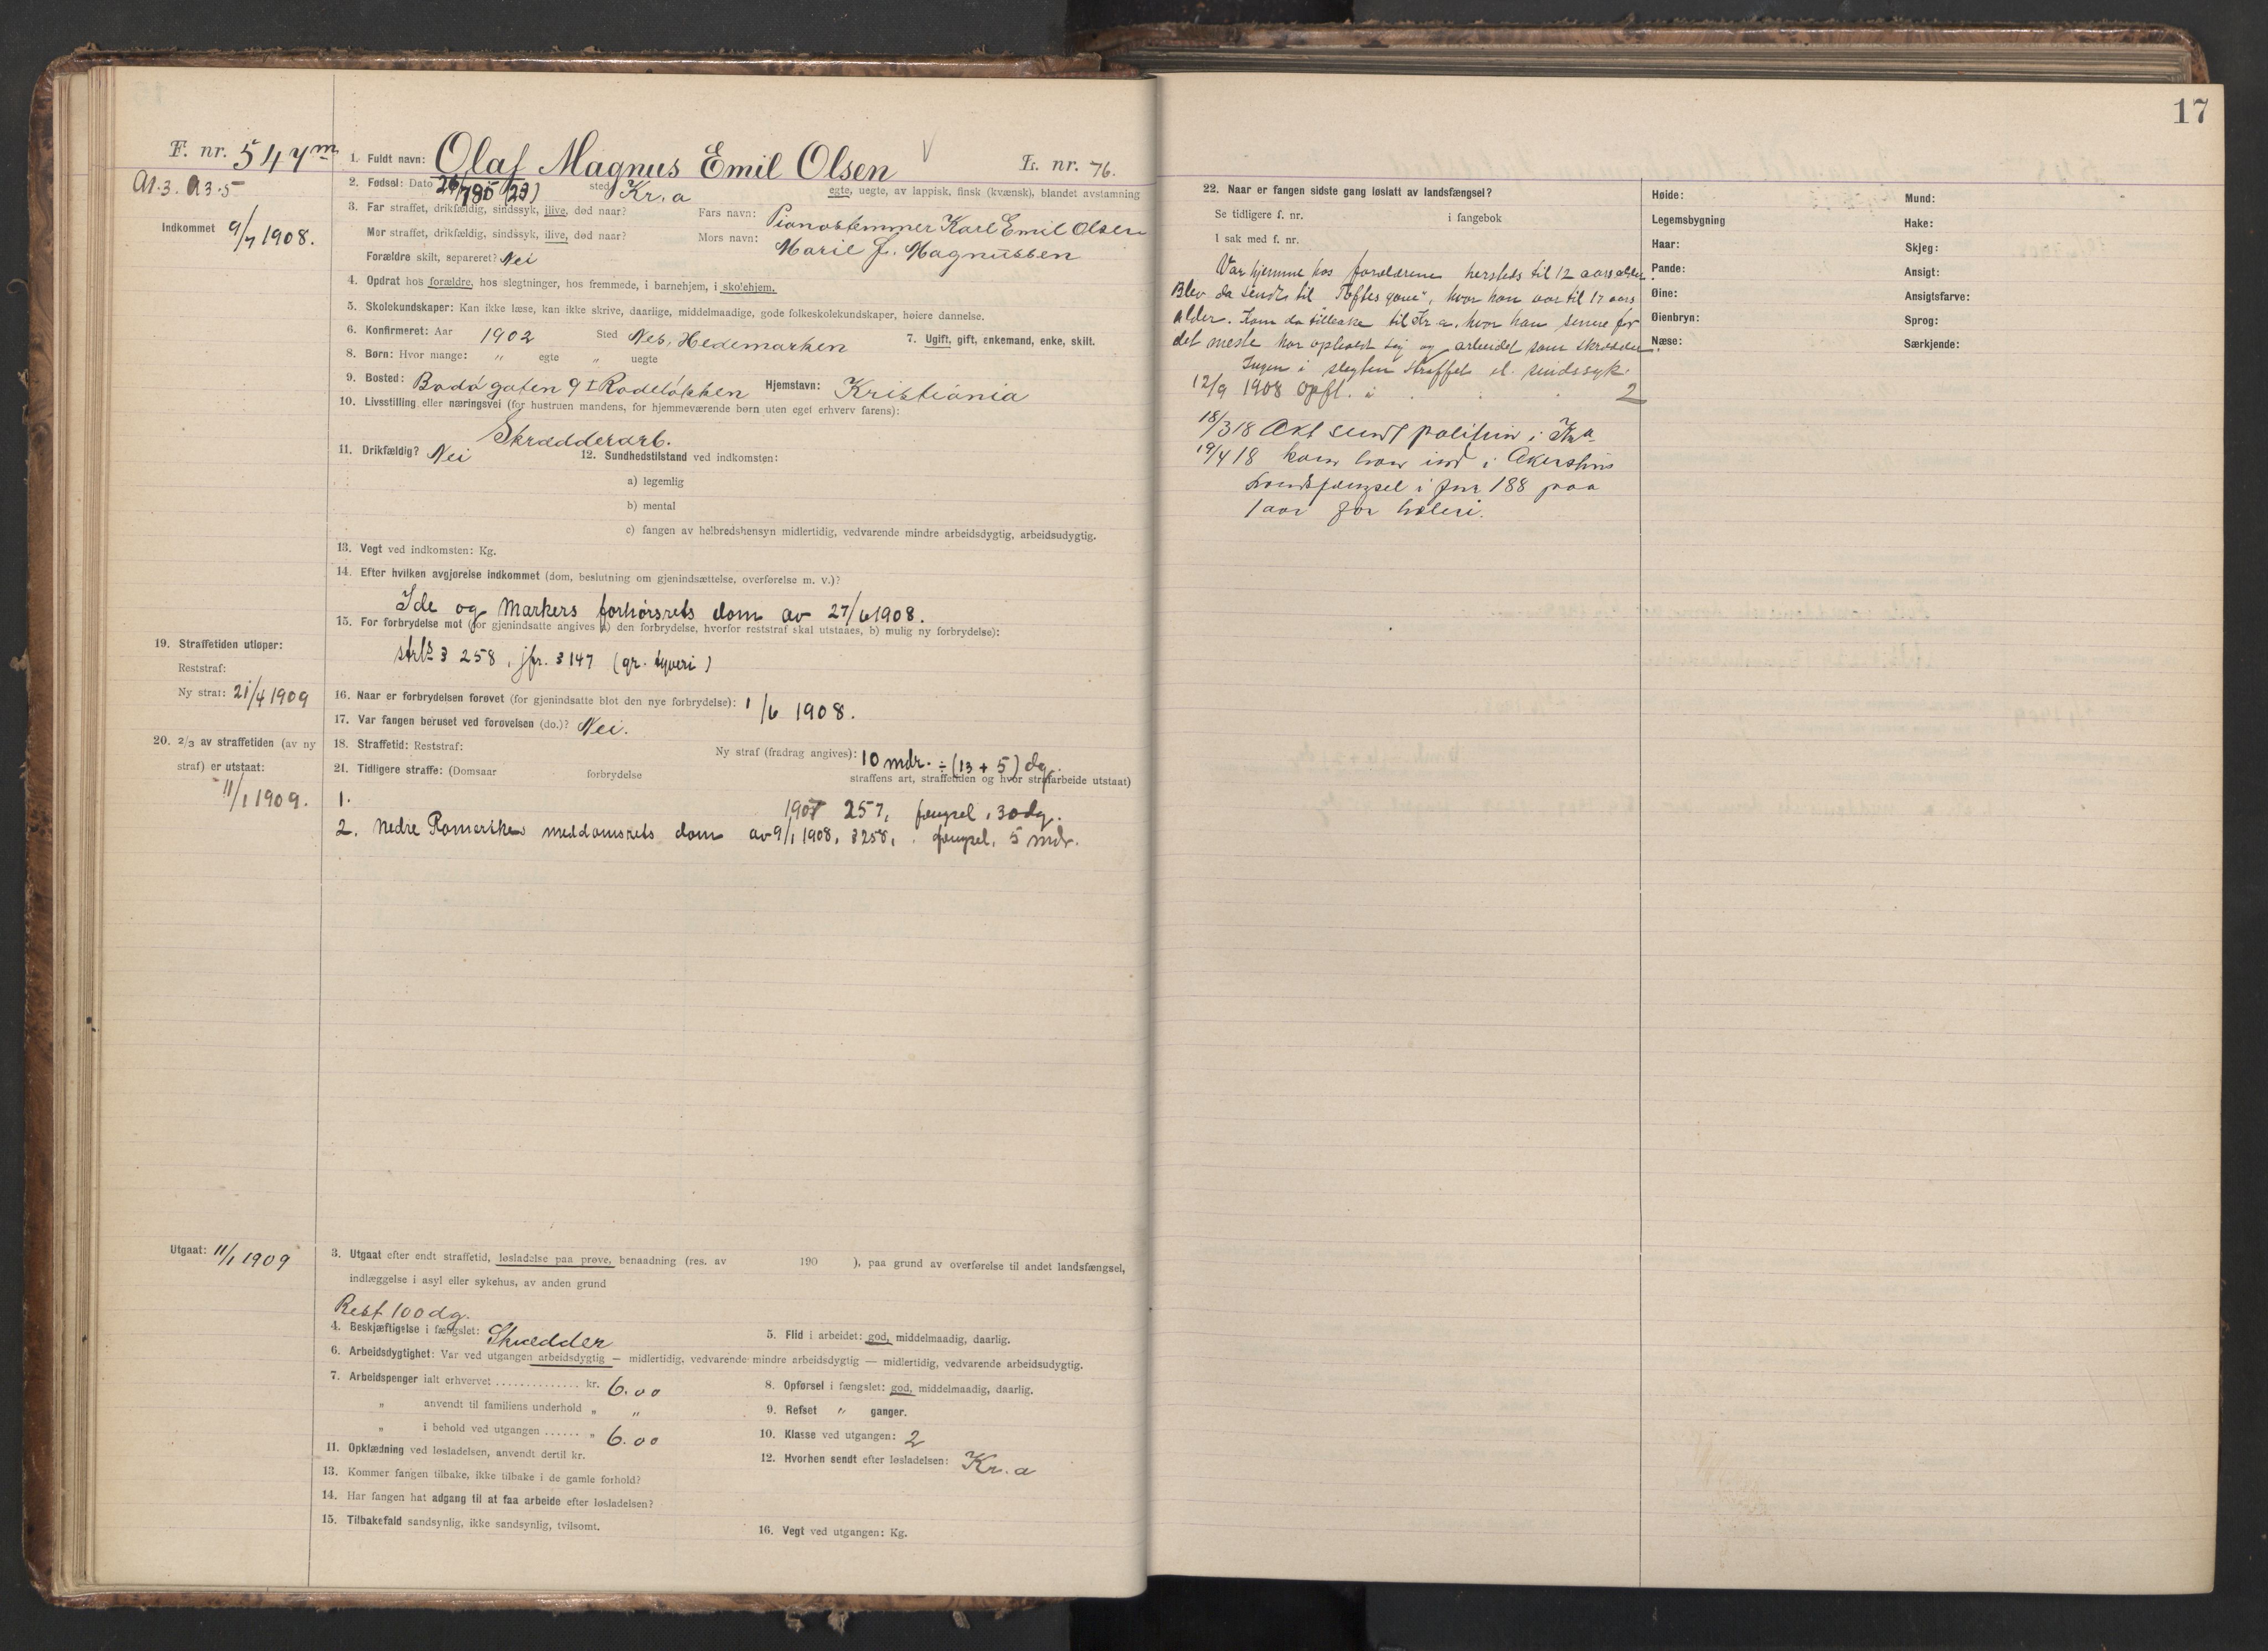 F. nr. 547 m
A1.3. A3.5
Indkommet 9/7 1908.
1. Fuldt navn: Olaf Magnus Emil Olsen L. nr. 76.
2. Fødsel: Dato (23) sted Kr.a egte, uegte, av lappisk, finsk (kvænsk), blandet avstamning
3. Far straffet, drikfældig, sindssyk, ilive, død naar? Fars navn: Pianostemmer Karl Emil Olsen
Mor straffet, drikfældig, sindssyk, ilive, død naar? Mors navn: Marie J. Magnussen
Forældre skilt, separeret? Nei
4. Opdrat hos forældre, hos slegtninger, hos fremmede, i barnehjem, i skolehjem.
5. Skolekundskaper: Kan ikke læse, kan ikke skrive, daarlige, middelmaadige, gode folkeskolekundskaper, høiere dannelse.
6. Konfirmeret: Aar 1902 Sted Nes, Hedemarken 7. Ugift, gift, enkemand, enke, skilt.
8. Børn: Hvor mange: " egte " uegte
9. Bosted: Bodø gaten 9 I Rodeløkken Hjemstavn: Kristiania
10. Livsstilling eller næringsvei (for hustruen mandens, for hjemmeværende børn uten eget erhverv farens):
Skrædderarb.
11. Drikfældig? Nei 12. Sundhedstilstand ved indkomsten:
a) legemlig
b) mental
c) fangen av helbredshensyn midlertidig, vedvarende mindre arbeidsdygtig, arbeidsudygtig.
13. Vegt ved indkomsten: Kg.
14. Efter hvilken avgjørelse indkommet (dom, beslutning om gjenindsættelse, overførelse m. v.)?
Ide og Markers forhørsrets dom av 27/6 1908.
15. For forbrydelse mot (for gjenindsatte angives a) den forbrydelse, hvorfor reststraf skal utstaaes, b) mulig ny forbrydelse):
strls § 258, jfr. § 147 (gr. tyveri)
19. Straffetiden utløper:
Reststraf:
Ny straf: 21/4 1909
16. Naar er forbrydelsen forøvet (for gjenindsatte blot den nye forbrydelse): 1/6 1908.
17. Var fangen beruset ved forøvelsen (do.)? Nei.
20. 2/3 av straffetiden (av ny
straf) er utstaat:
11/1 1909.
18. Straffetid: Reststraf: Ny straf (fradrag angives): 10 mdr. ÷ (13 + 5) dg.
21. Tidligere straffe: (Domsaar forbrydelse straffens art, straffetiden og hvor strafarbeide utstaat)
1. 1907 257, fængsel, 30 dg.
2. Nedre Romerikes meddomsrets dom av 9/1 1908, § 258, fængsel, 5 mdr.
Utgaat: 11/1 1909
3. Utgaat efter endt straffetid, løsladelse paa prøve, benaadning (res. av 190 ), paa grund av overførelse til andet landsfængsel,
indlæggelse i asyl eller sykehus, av anden grund
Rest 100 dg.
4. Beskjæftigelse i fængslet: Skrædder 5. Flid i arbeidet: god, middelmaadig, daarlig.
6. Arbeidsdygtighet: Var ved utgangen arbeidsdygtig — midlertidig, vedvarende mindre arbeidsdygtig — midlertidig, vedvarende arbeidsudygtig.
7. Arbeidspenger ialt erhvervet .............. kr. 6.00 8. Opførsel i fængslet: god, middelmaadig, daarlig.
" anvendt til familiens underhold " " 9. Refset " ganger.
" i behold ved utgangen ...... " 6.00 10. Klasse ved utgangen: 2
11. Opklædning ved løsladelsen, anvendt dertil kr. 12. Hvorhen sendt efter løsladelsen: Kr.a
13. Kommer fangen tilbake, ikke tilbake i de gamle forhold?
14. Har fangen hat adgang til at faa arbeide efter løsladelsen?
15. Tilbakefald sandsynlig, ikke sandsynlig, tvilsomt. 16. Vegt ved utgangen: Kg.
17
22. Naar er fangen sidste gang løslatt av landsfængsel?
Se tidligere f. nr. i fangebok
I sak med f. nr.
Var hjemme hos forældrene hersteds til 12 aars alder.
Blev da sendt til "Toftes gave", hvor han var til 17 aars
alder. Kom da tilbake til Kr.a. hvor han senere for
det meste har opholdt sig og arbeidet som skrædder.
Ingen i slegten straffet el. sindssyk.
12/9 1908 opfl. i 2
18/3 18 Akt sendt politiet i Kra
19/4 18 kom han ind i Akershus
landsfængsel i fnr 188 paa
1 aar for hæleri.
Høide: Mund:
Legemsbygning Hake:
Haar: Skjeg:
Pande: Ansigt:
Øine: Ansigtsfarve:
Øienbryn: Sprog:
Næse: Særkjende: